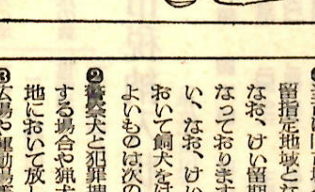 留指定地域とな
なお、けい留期
なっておりま
い、なお、けい
おいて飼犬をは
よいものは次の
❷警察犬と犯罪捜
する場合や猟犬
地において放し
❸広場や運動場